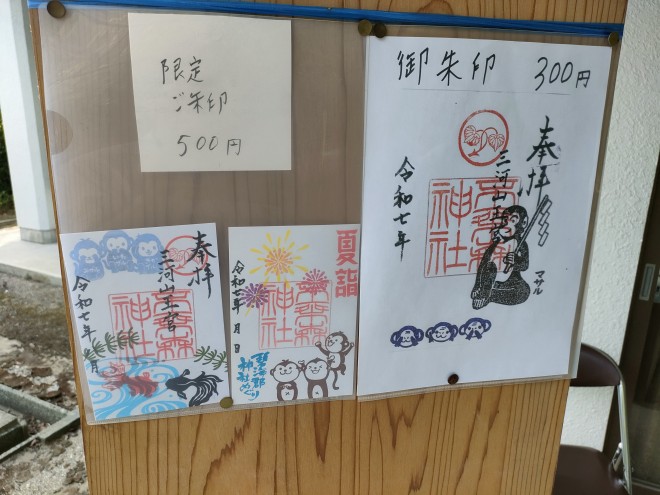 限定
ご朱印
500円
御朱印 300円
奉拝
三河山王宮
神社
令和七年
マサル
奉拝
三河山王宮
神社
令和七年 月
夏詣
神社
令和七年 月 日
神社めぐり